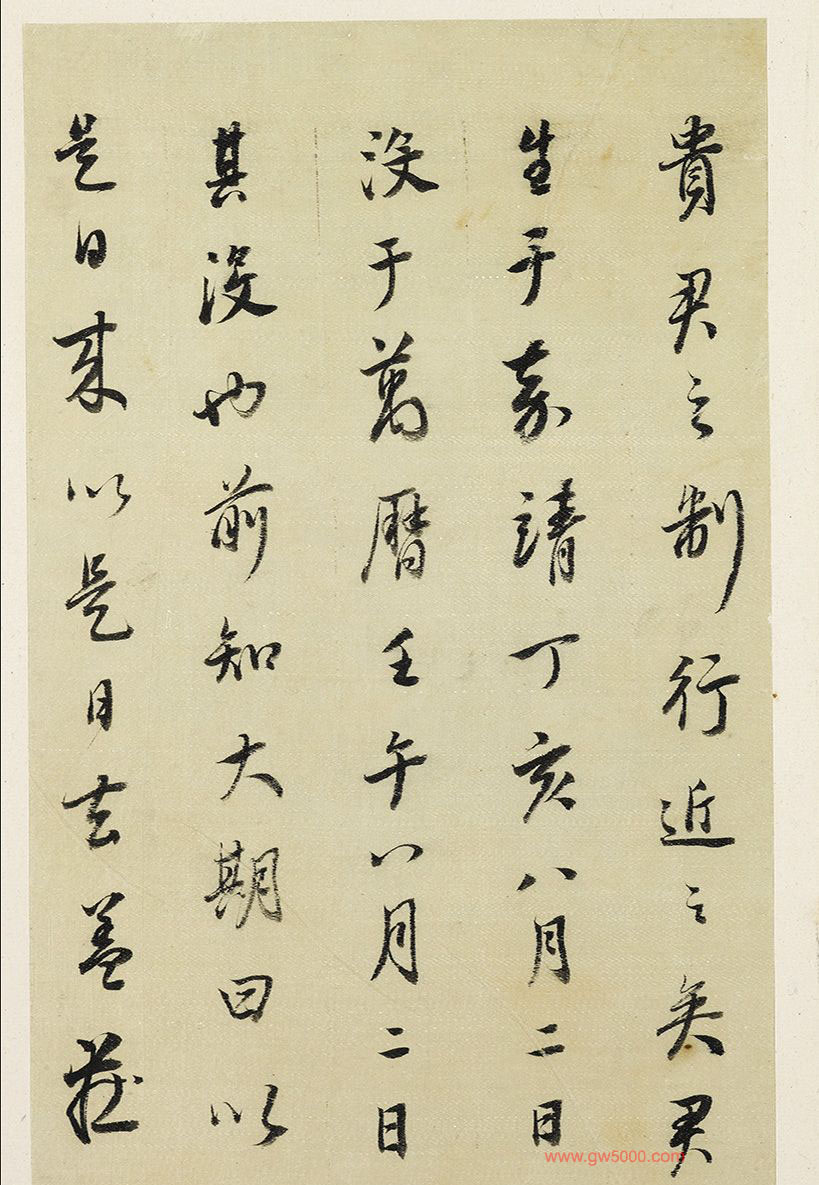 貴君之制行近之矣君
生于嘉靖丁亥八月二日
沒于萬曆壬午八月二日
其沒也前知大期曰以
是日來以是日去蓋莊
www.gw5000.com